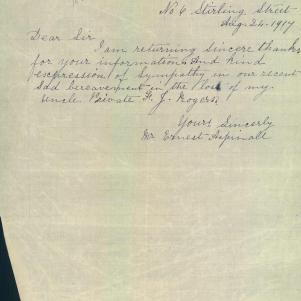 No 6 Stirling Street
Aug. 24. 1917
Dear Sir
I am returning sincere thanks
for your information and kind
expression of sympathy in our recent
sad bereavement in the loss of my
Uncle Private F. J. Rogers
Yours Sincerly
Mr Ernest Aspinall